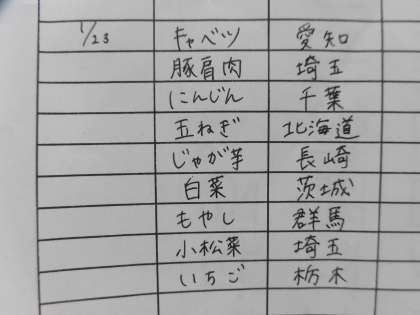 1/23 キャベツ 愛知
豚肩肉 埼玉
にんじん 千葉
玉ねぎ 北海道
じゃが芋 長崎
白菜 茨城
もやし 群馬
小松菜 埼玉
いちご 栃木